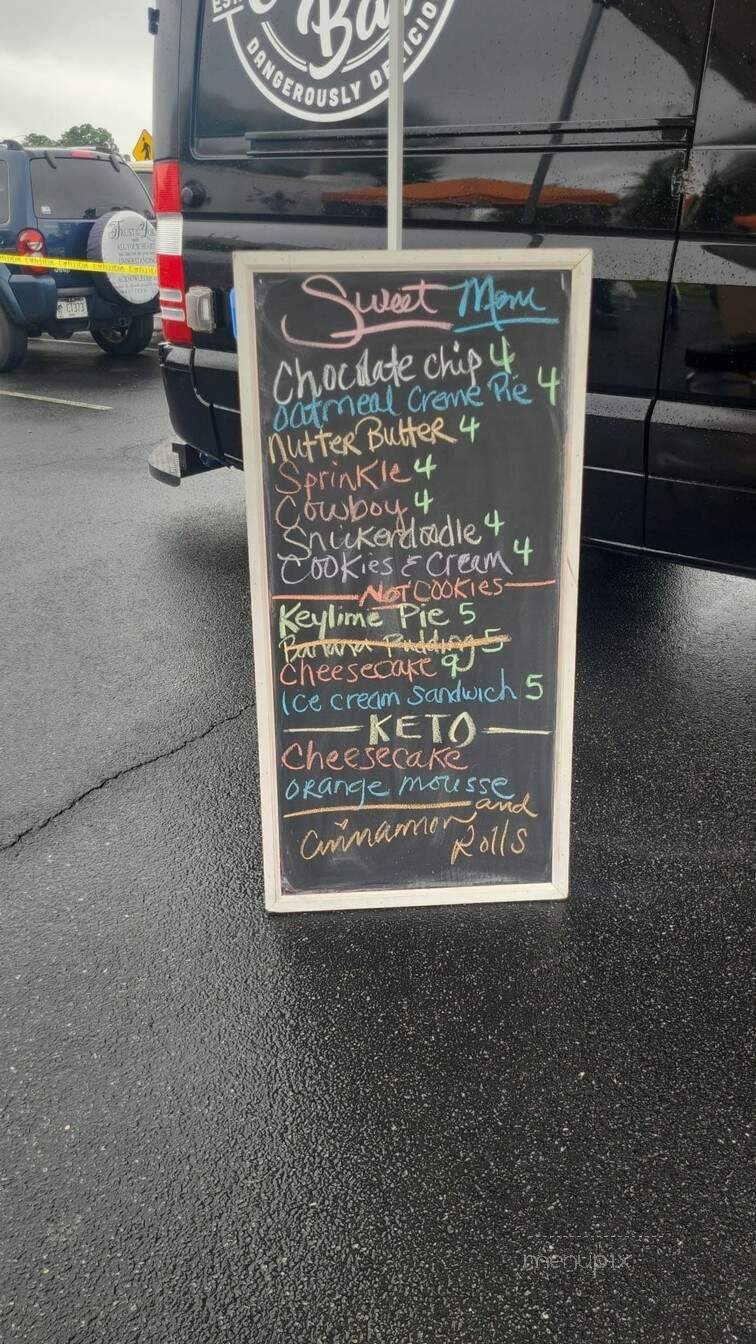 EST
Ba
DANGEROUSLY DELICIO
CAUTION CAUTION
TRUST IN THE
ALL YOUR HEART
CT373
Sweet Menu
Chocolate chip 4
Oatmeal Creme Pie 4
Nutter Butter 4
Sprinkle 4
Cowboy 4
Snickerdoodle 4
Cookies & Cream 4
NOT COOKIES
Keylime Pie 5
Banana Pudding 5
Cheesecake 9
Ice cream sandwich 5
KETO
Cheesecake
orange mousse
and
Cinnamon
Rolls
menupix